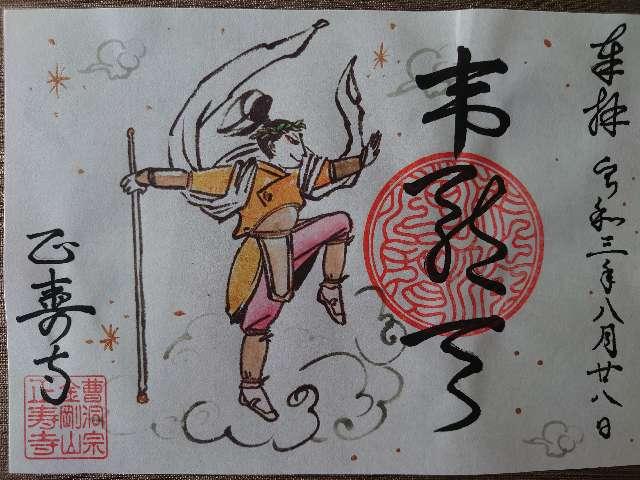 奉拝 令和三年八月廿八日
韦駄天
正寿寺
曹洞宗
金剛山
正寿寺